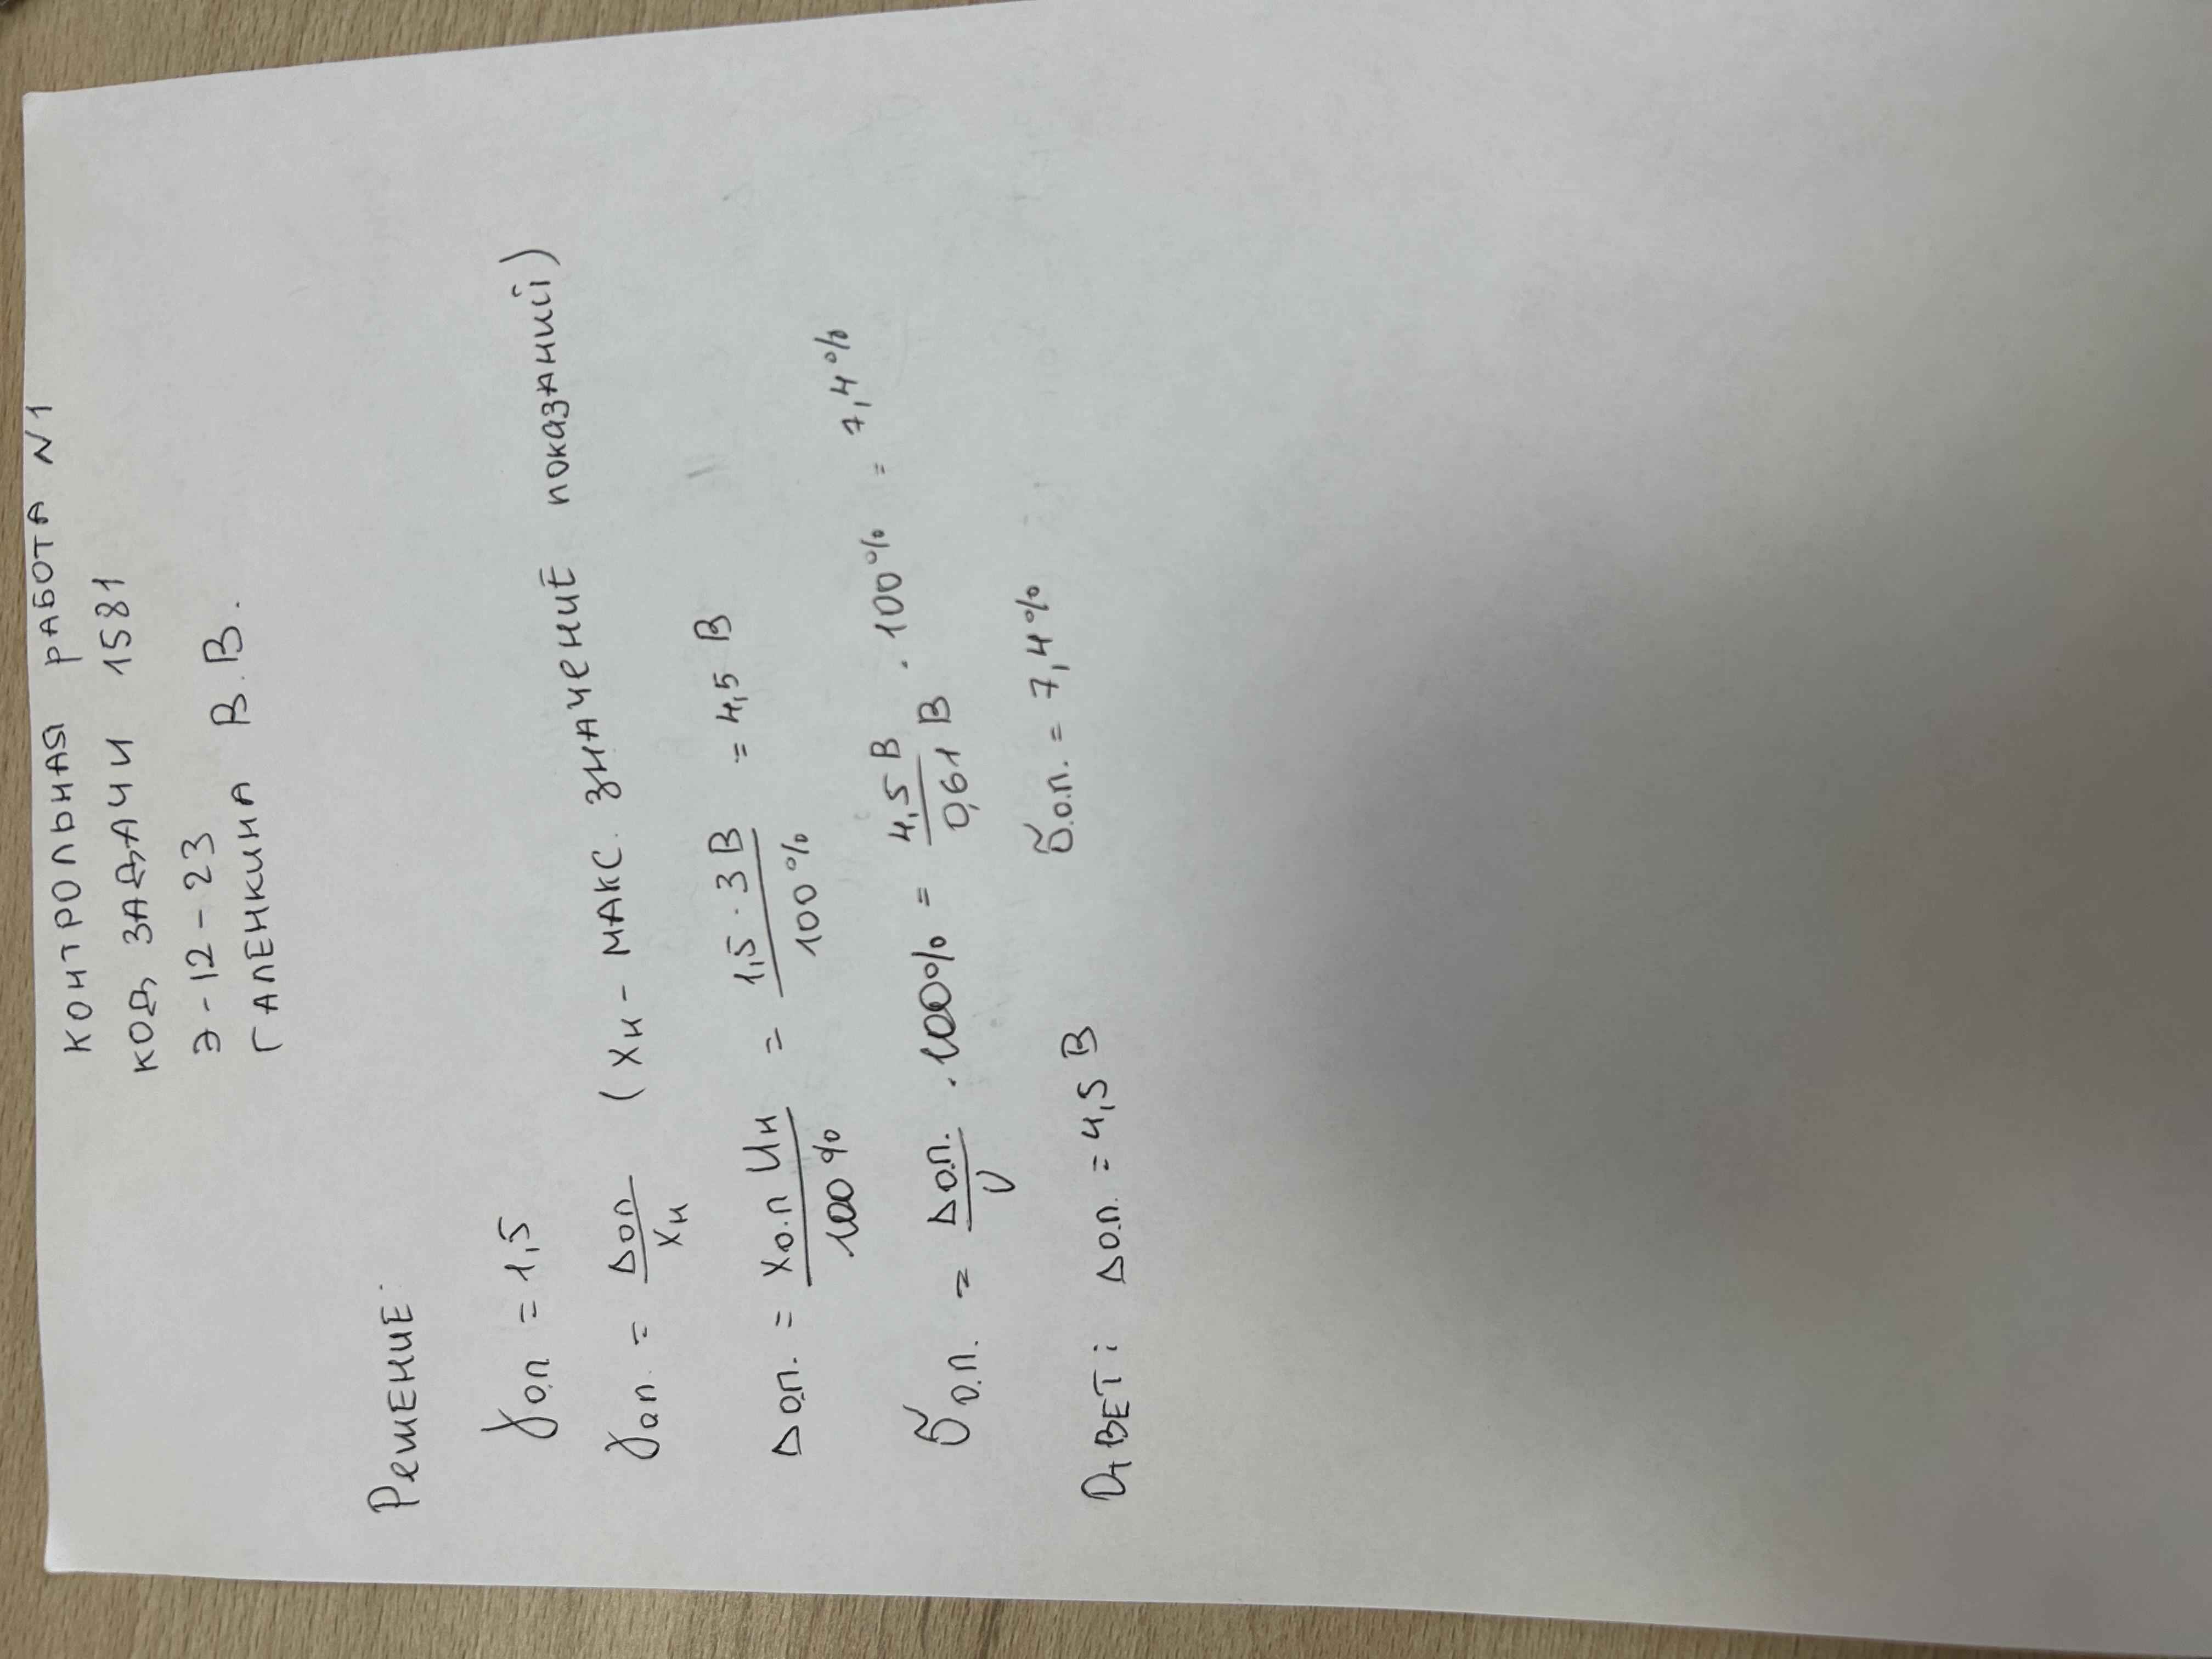 КОНТРОЛЬНАЯ РАБОТА N1
КОД ЗАДАЧИ 1581
Э-12-23
ГАЛЕНКИНА В.В.
РЕШЕНИЕ:
γо.п = 1,5
γо.п. = Δо.п / Xн (Xн - МАКС. ЗНАЧЕНИЕ ПОКАЗАНИЙ)
Δо.п. = Xо.п Uн / 100% = 1,5 · 3 В / 100% = 4,5 В
δо.п. = Δо.п. / U · 100% = 4,5 В / 0,61 В · 100% = 7,4%
ОТВЕТ: Δо.п. = 4,5 В δо.п. = 7,4%